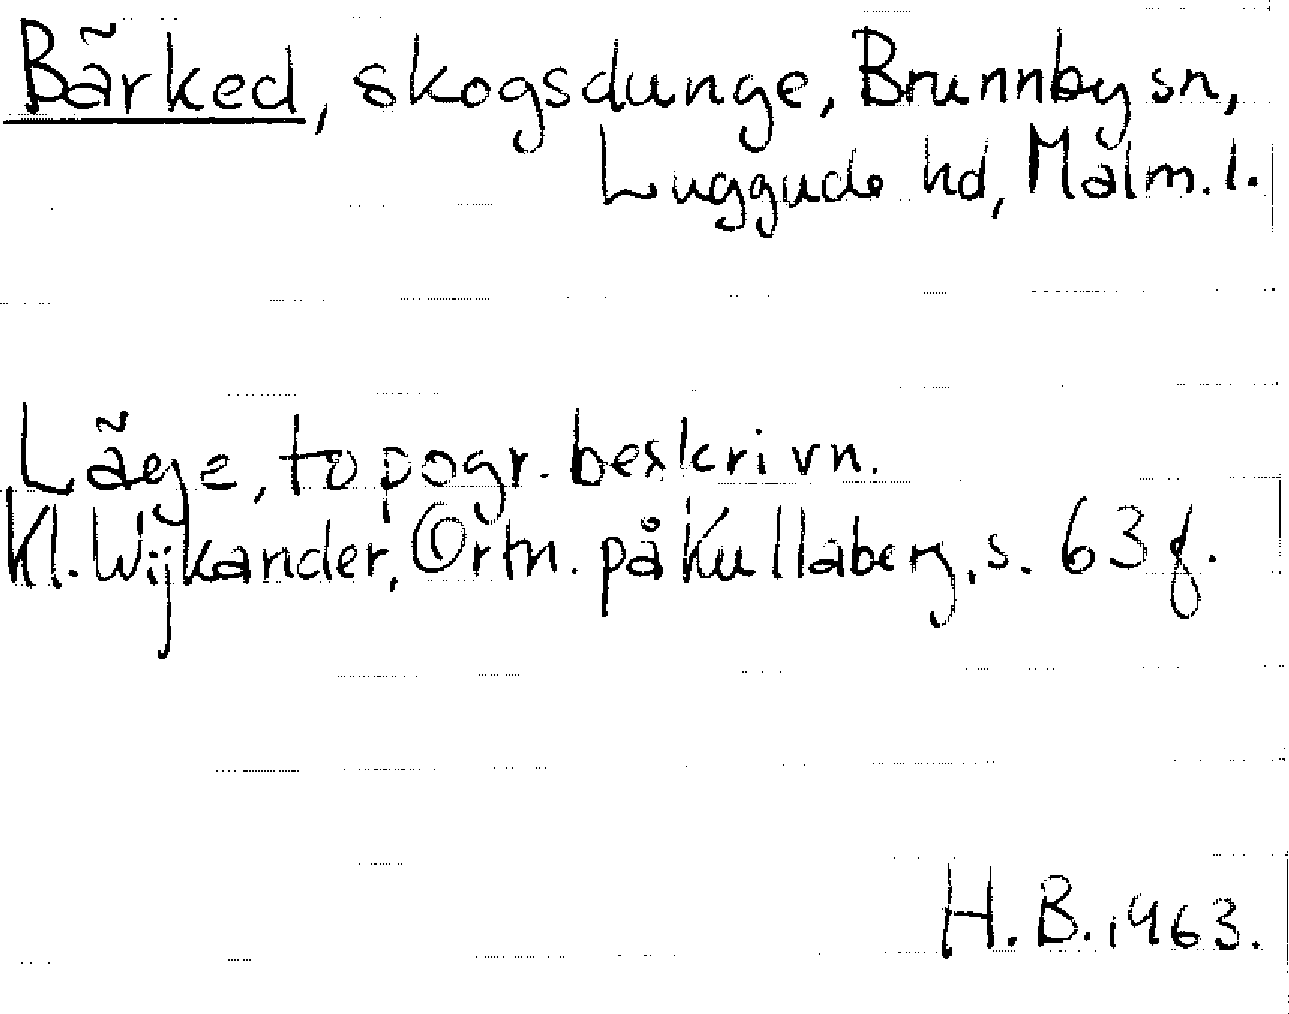 Bärked, skogsdunge, Brunnby sn,
Luggude hd, Malm. l.
Läge, topogr. beskrivn.
Kl. Wijkander, Ortn. på Kullaberg, s. 63 f.
H. B. 1963.